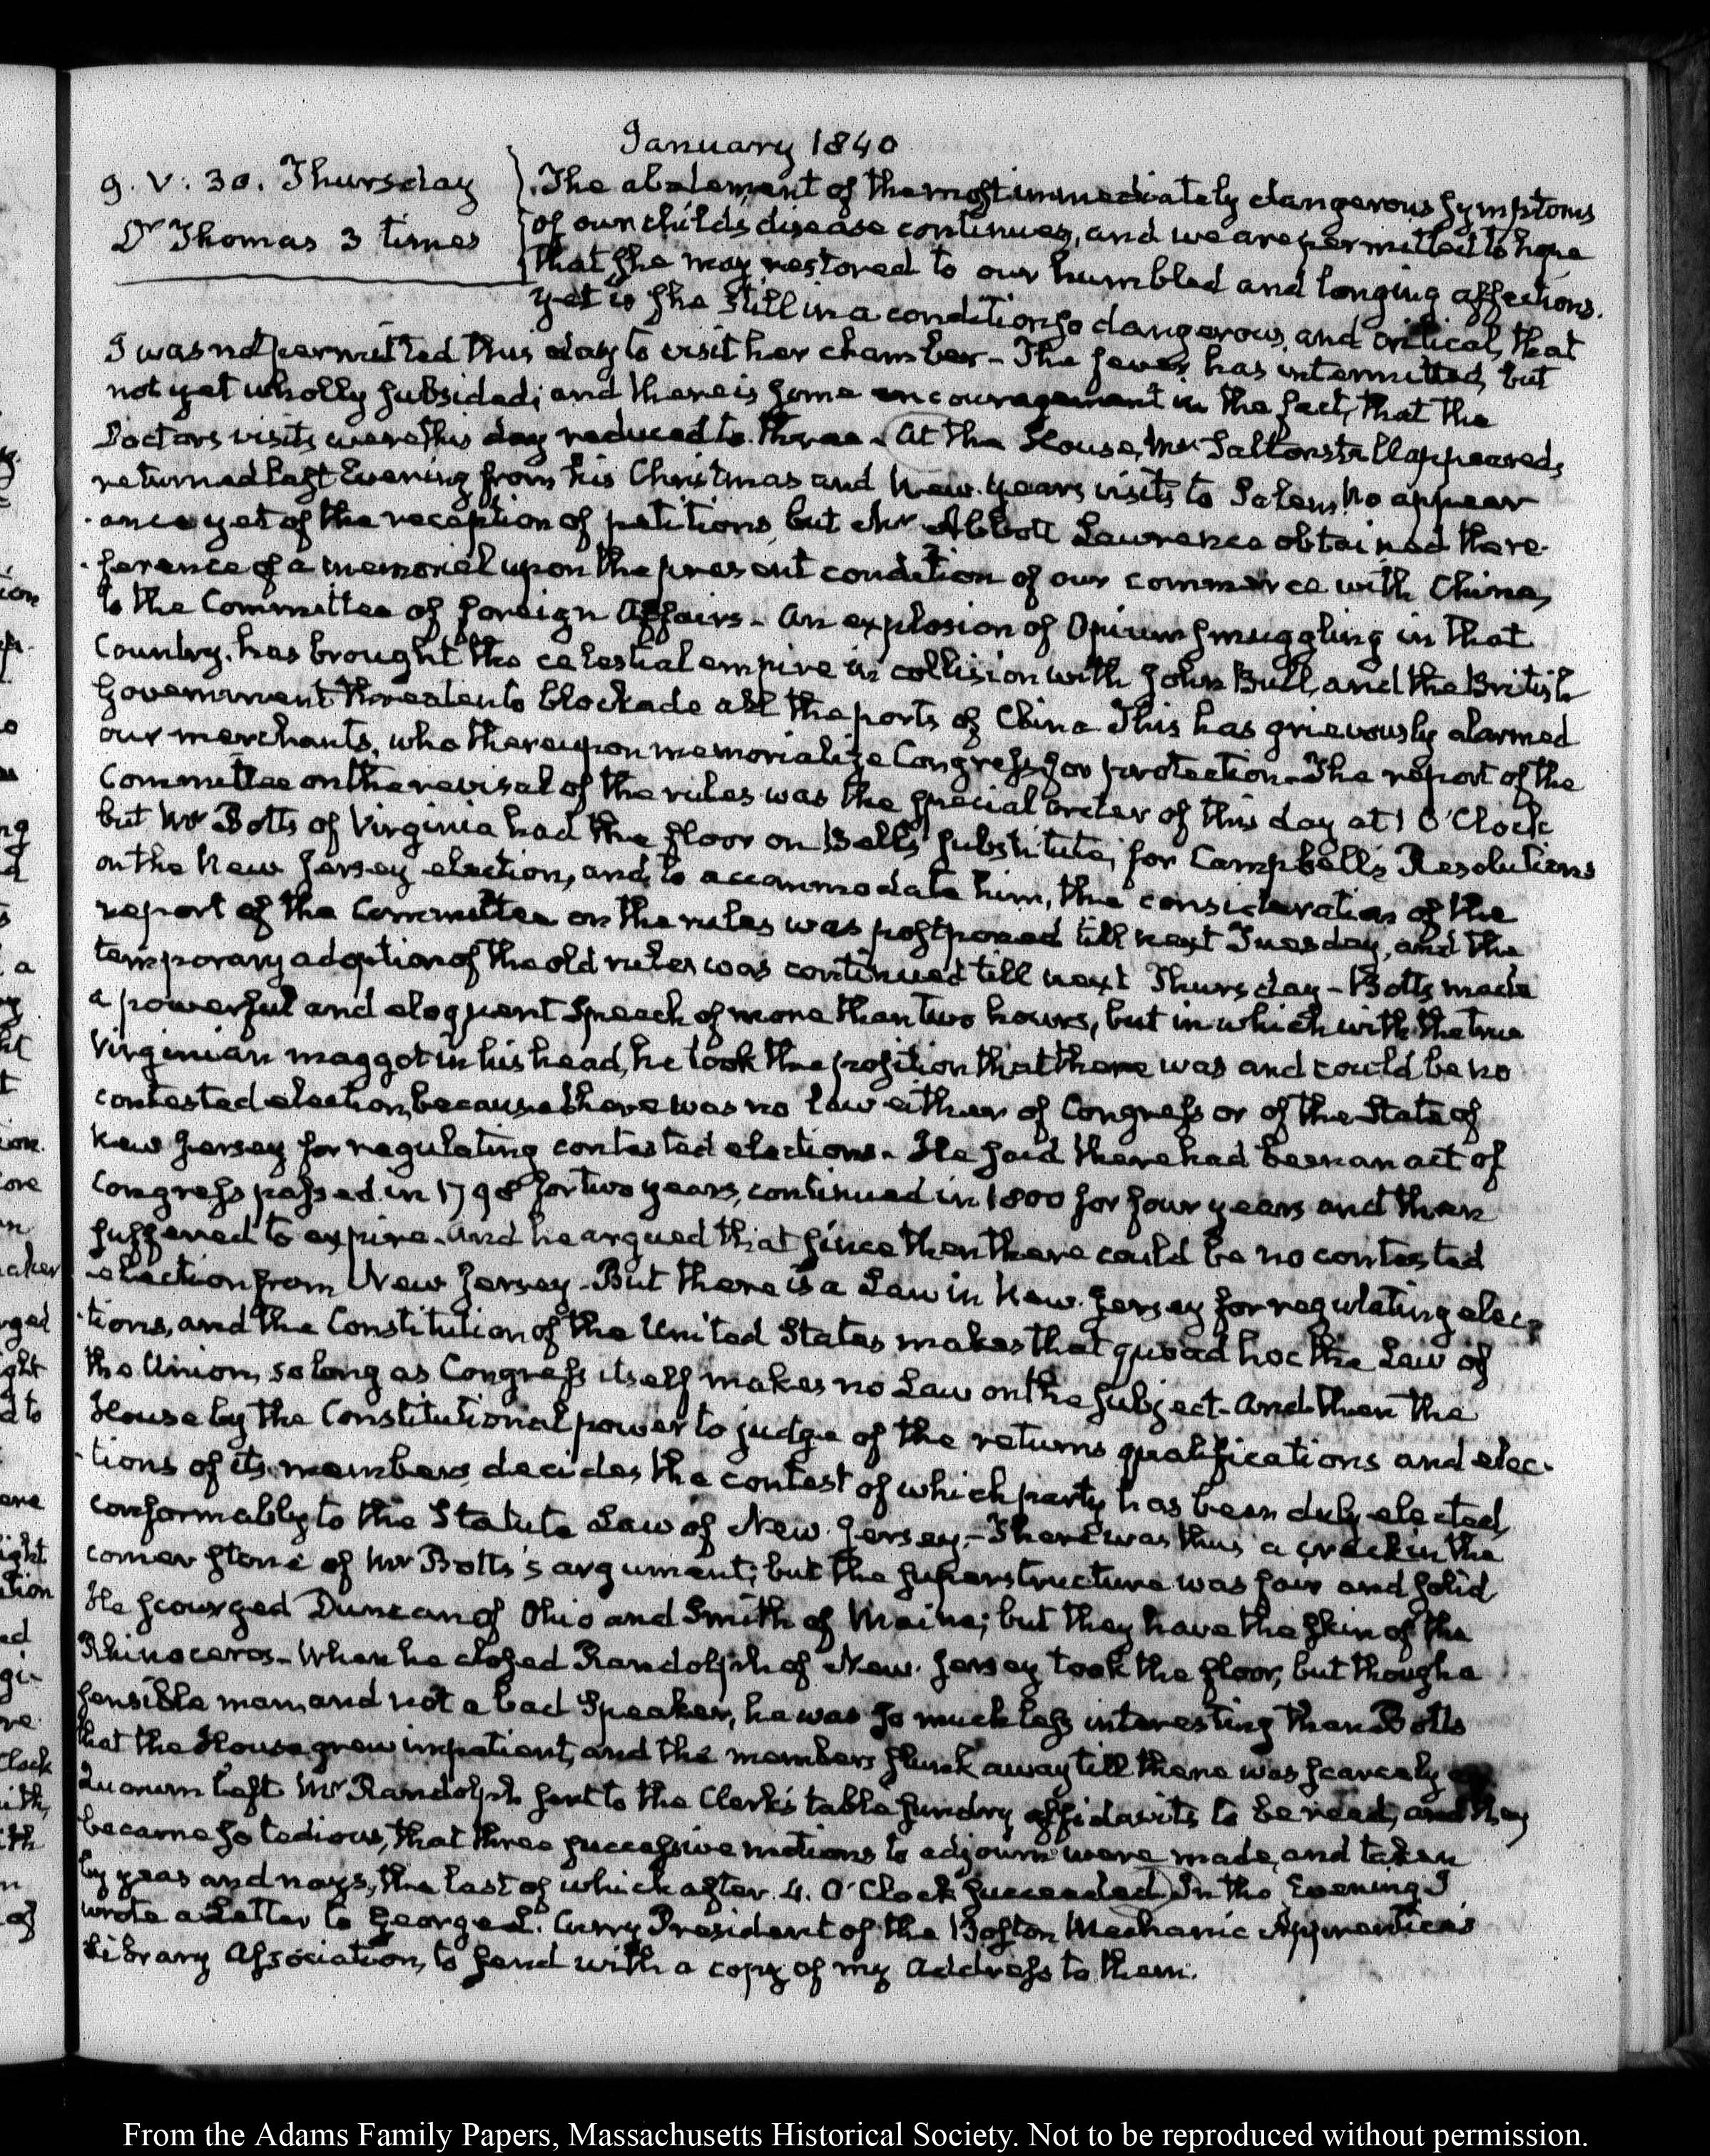 January 1840
9. V: 30. Thursday
Dr Thomas 3 times
The abatement of the most immediately dangerous symptoms
of our child's disease continues, and we are permitted to hope
that she may restored to our humbled and longing affections.
Yet is she still in a condition so dangerous, and critical, that
I was not permitted this day to visit her chamber - The fever has intermitted, but
not yet wholly subsided; and there is some encouragement in the fact, that the
Doctors visits were this day reduced to three - At the House, Mr Saltonstall appeared,
returned last Evening from his Christmas and New-years visits to Salem. No appear
-ance yet of the reception of petitions, but Mr Abbott Lawrence obtained the re-
-ference of a memorial upon the present condition of our commerce with China,
to the Committee of foreign Affairs - An explosion of Opium smuggling in that
Country. has brought the celestial empire in collision with John Bull, and the British
Government threaten to blockade all the ports of China This has grievously alarmed
our merchants, who thereupon memorialize Congress for protection - The report of the
Committee on the revisal of the rules was the special order of this day at 1 O'Clock
but Mr Botts of Virginia had the floor on Bell's substitute, for Campbell's Resolutions
on the New Jersey election, and to accommodate him, the consideration of the
report of the Committee on the rules was postponed till next Tuesday, and the
temporary adoption of the old rules was continued till next Thursday - Botts made
a powerful and eloquent Speech of more than two hours, but in which with the true
Virginian maggot in his head, he took the position that there was and could be no
contested election, because there was no Law either of Congress or of the State of
New Jersey for regulating contested elections - He said there had been an act of
Congress passed in 1798 for two years, continued in 1800 for four years and then
suffered to expire - And he argued that since then there could be no contested
election from New Jersey - But there is a Law in New-Jersey for regulating elec-
-tions, and the Constitution of the United States makes that quoad hoc the Law of
the Union, so long as Congress itself makes no Law on the subject - And then the
House by the Constitutional power to judge of the returns qualifications and elec-
-tions of its members, decides the contest of which party has been duly elected,
conformably to the Statute Law of New-Jersey. - There was thus a crack in the
corner stone of Mr Botts's argument; but the superstructure was fair and solid
He scourged Duncan of Ohio and Smith of Maine; but they have the skin of the
Rhinoceros - When he closed Randolph of New-Jersey took the floor, but though a
sensible man, and not a bad Speaker, he was so much less interesting than Botts
that the House grew impatient, and the members slunk away till there was scarcely a
Quorum left Mr Randolph sent to the Clerk's table sundry affidavits to be read, and they
became so tedious, that three successive motions to adjourn were made, and taken
by yeas and nays, the last of which after 4. O'Clock succeeded. In the Evening I
wrote a Letter to George L. Curry President of the Boston Mechanic Apprentices
Library Association, to send with a copy of my Address to them.
From the Adams Family Papers, Massachusetts Historical Society. Not to be reproduced without permission.